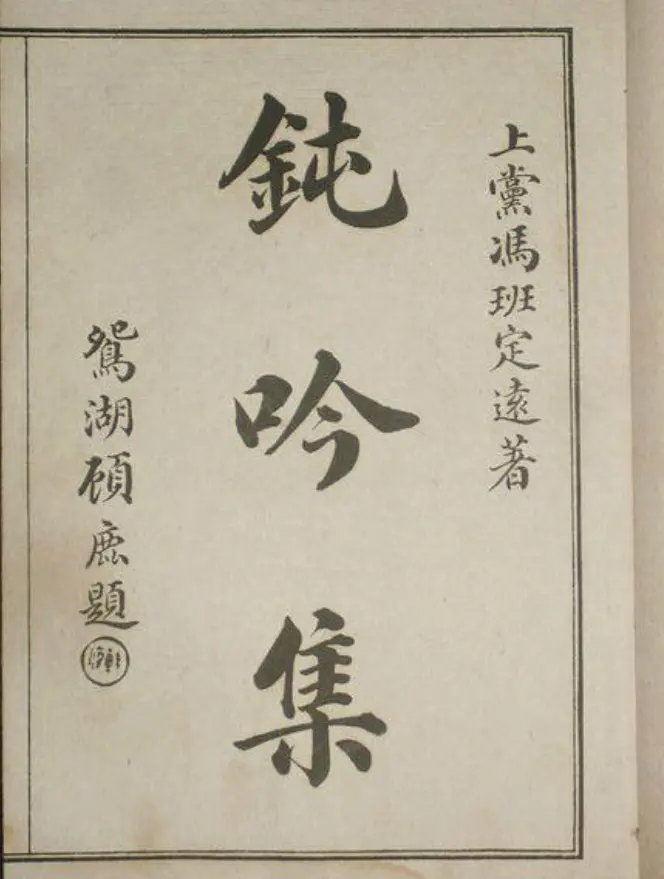 上黨馮班定遠著
鈍吟集
鴛湖頋題